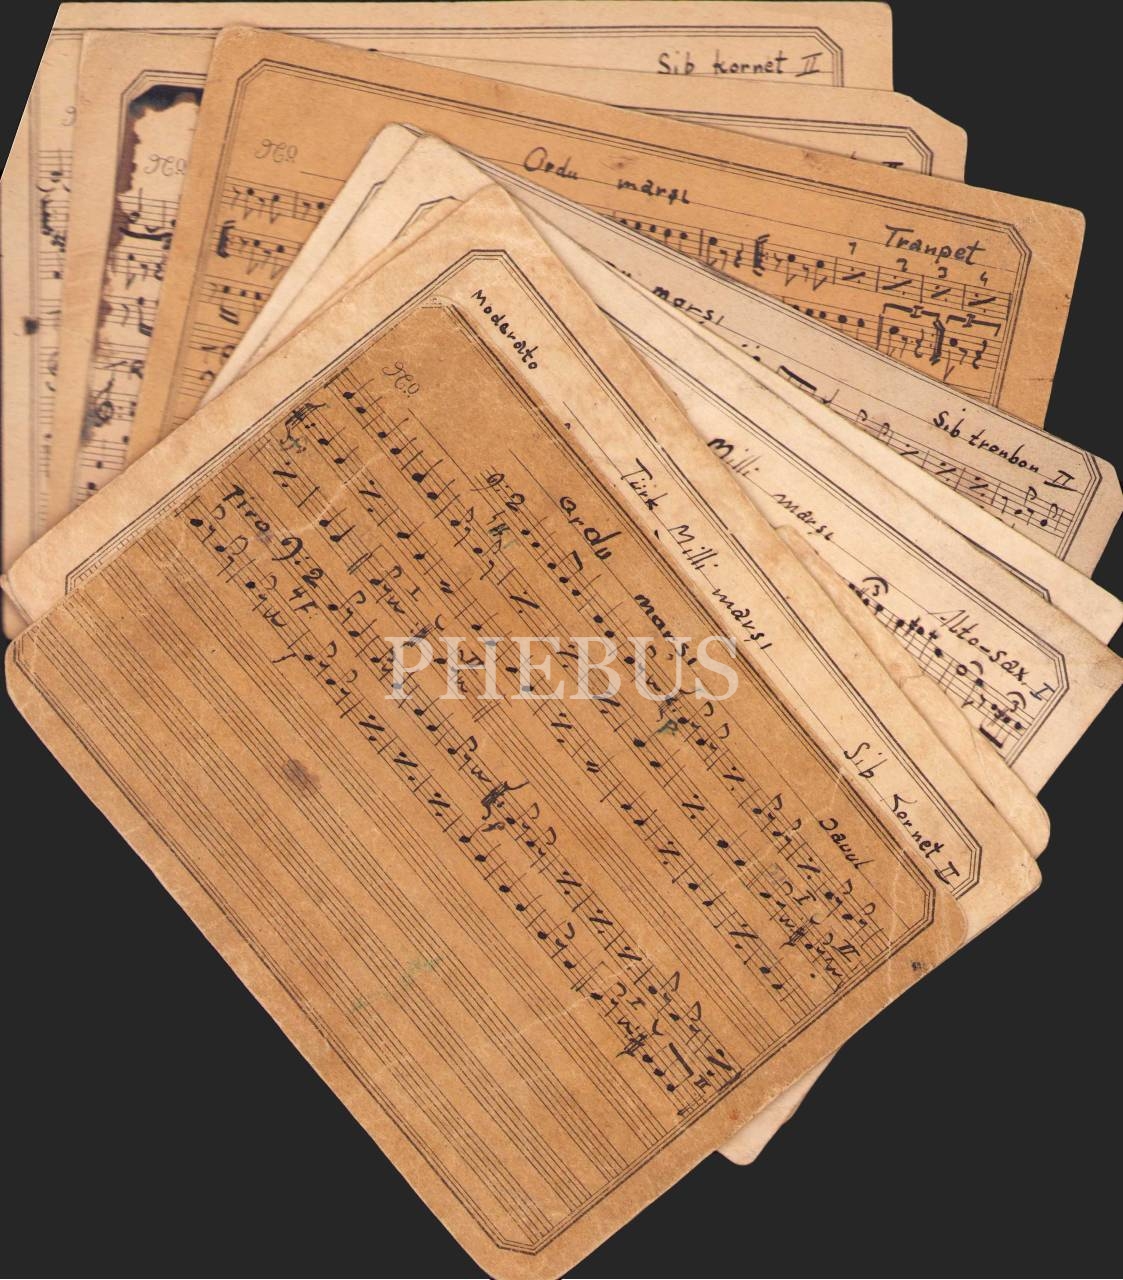 Sib kornet II
II
No
No
No
Ordu marşı
Tranpet
1 2 3 4
I I
marşı
Sib tronbon II
Milli marşı
Alto-sax I
Moderato
Türk Milli marşı
Sib Kornet II
No
Ordu marşı
Davul
I II
Piro
I II
PHEBUS